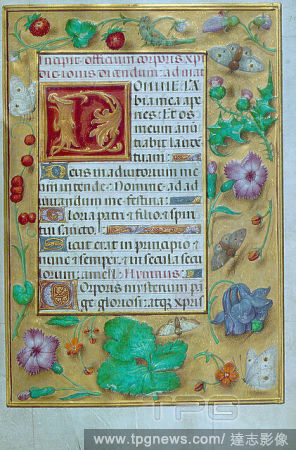 Incipit officium corporis xpi
die iouis dicendum ad mat
Domine la
bia mea ape
ries Et os
meum annū
tiabit laudē
tuam
Deus in adiutorium me
um intende Domine ad ad
iuuandum me festina
Gloria patri et filio et spiri
tui sancto
Sicut erat in principio et
nunc et semper et in secula secu
lorum amen Hymnus
Corporis misterium pā
ge gloriosi atqꝫ xpris
TPG
www.tpgnews.com/ 達志影像